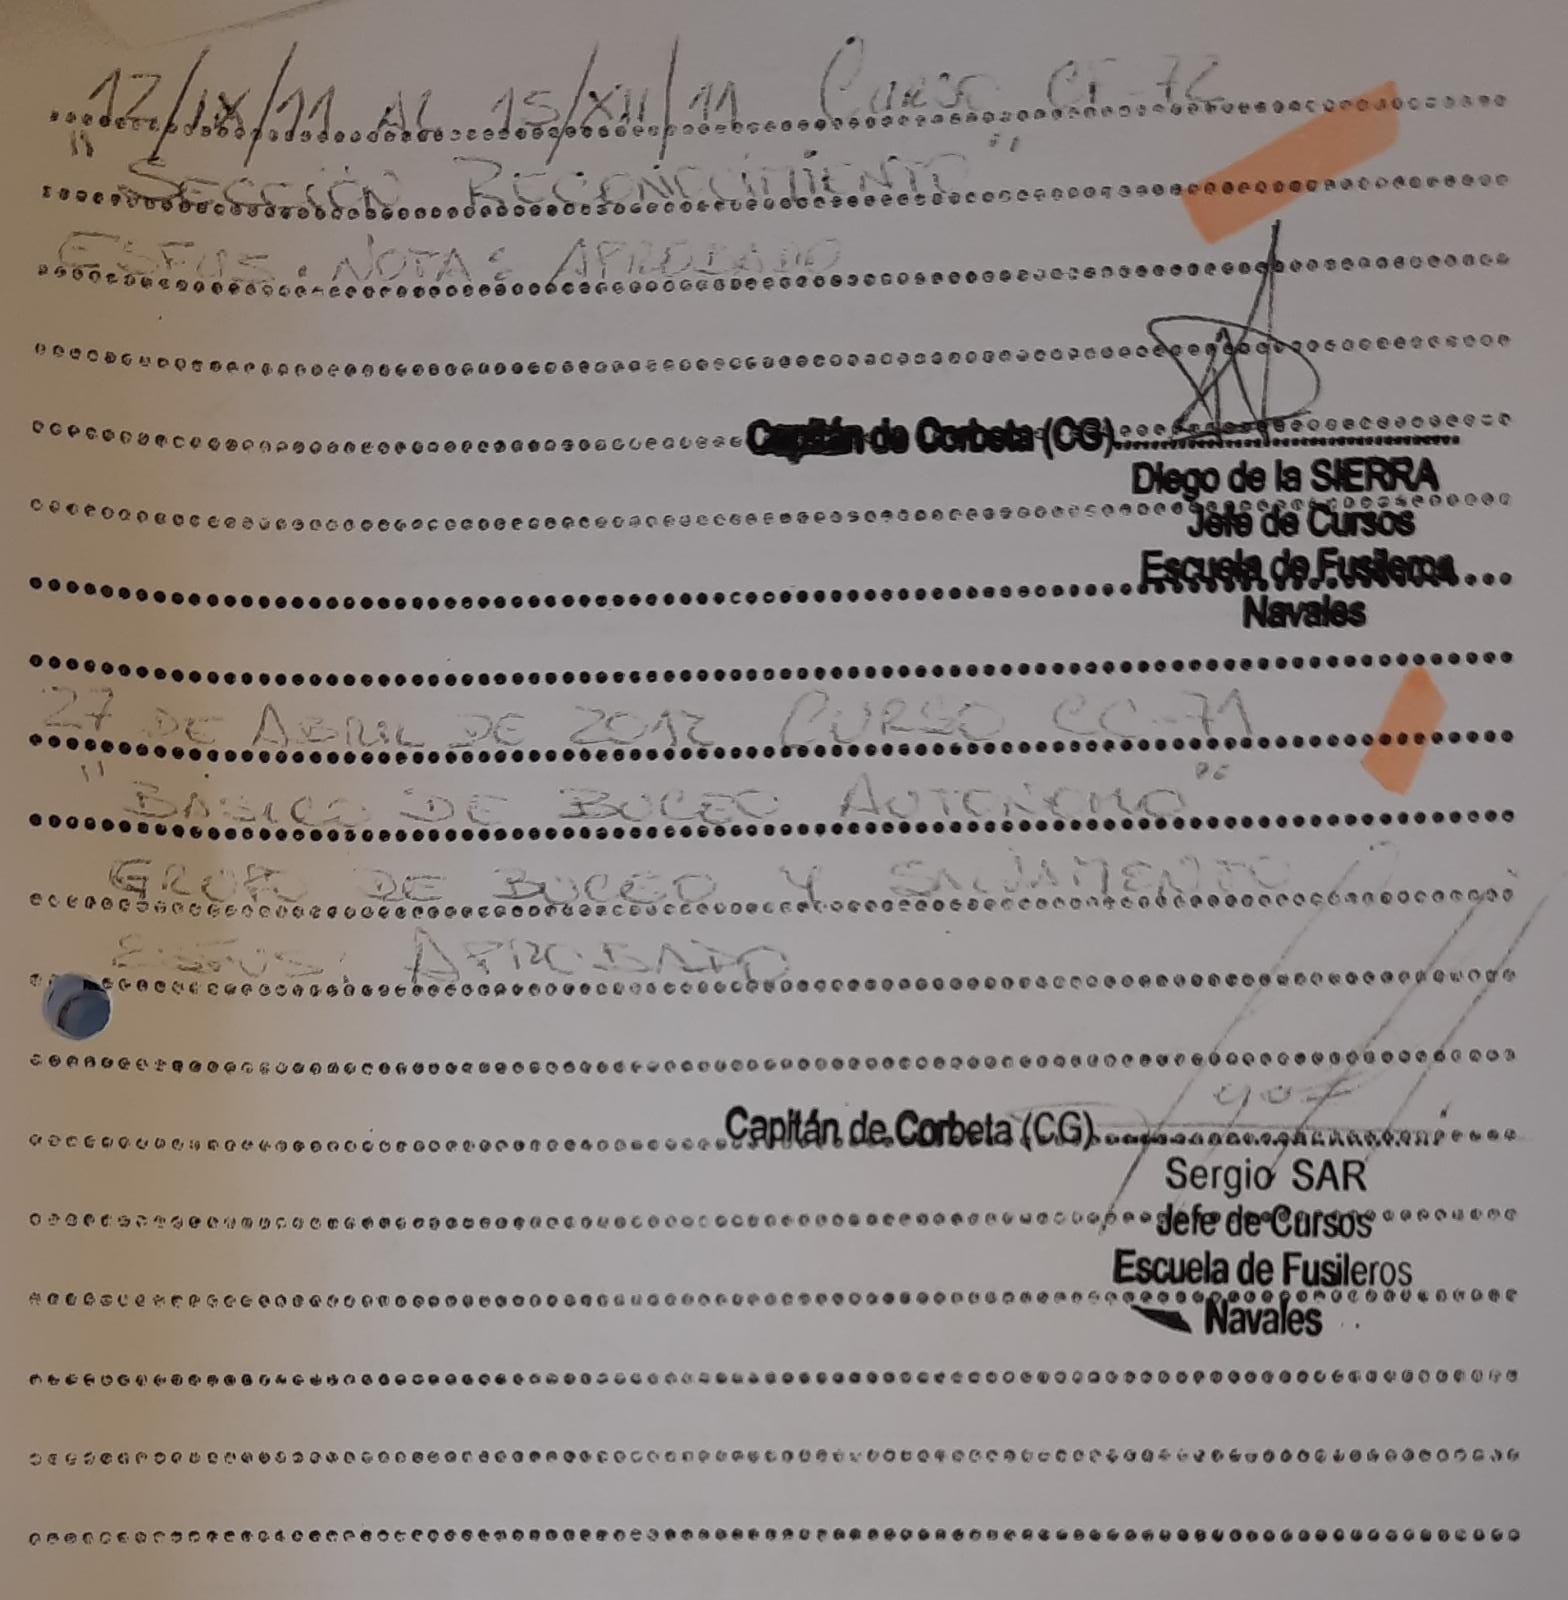 12/IX/11 AL 15/XII/11 CURSO CF-72
"SECCIÓN RECONOCIMIENTO"
ESFUS. NOTA: APROBADO
Capitán de Corbeta (CG)
Diego de la SIERRA
Jefe de Cursos
Escuela de Fusileros
Navales
27 DE ABRIL DE 2012 CURSO CC-71
"BASICO DE BUCEO AUTONOMO"
GRUPO DE BUCEO Y SALVAMENTO
ESFUS: APROBADO
Capitán de Corbeta (CG)
Sergio SAR
Jefe de Cursos
Escuela de Fusileros
Navales